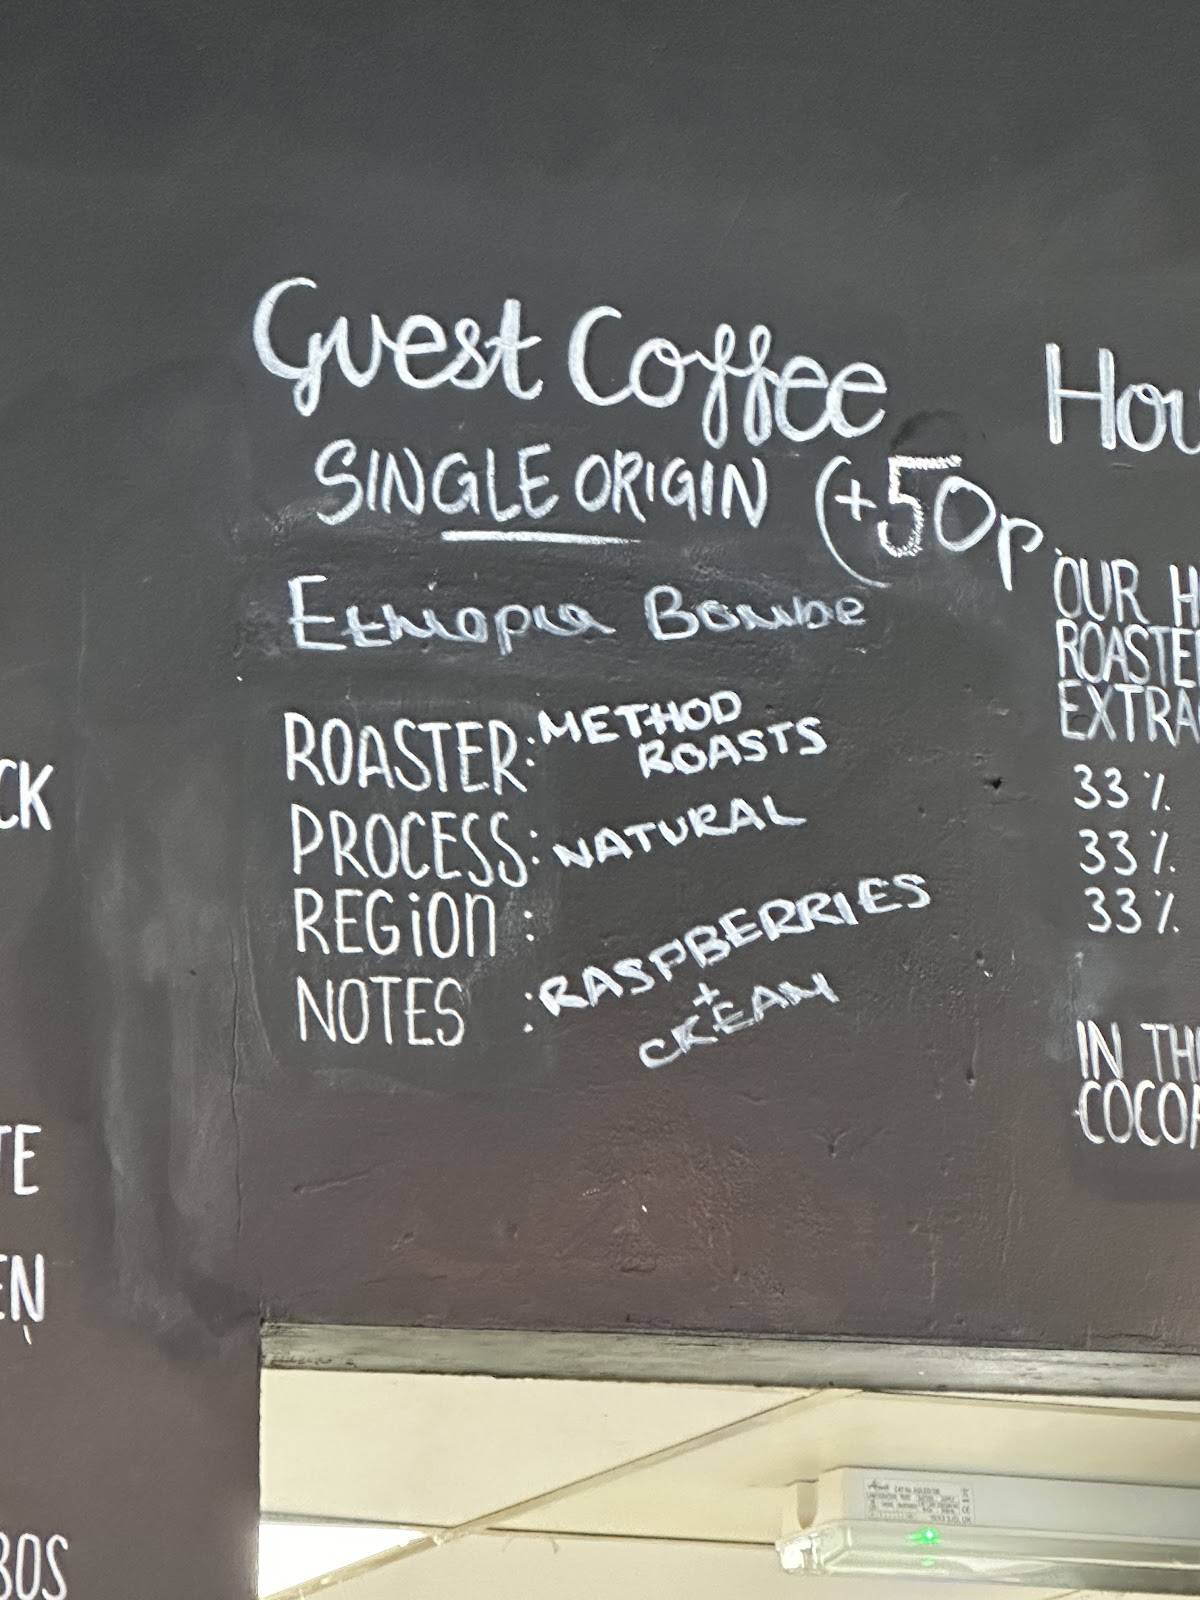 Guest Coffee
SINGLE ORIGIN (+50p
Ethiopia Bombe
ROASTER: METHOD
ROASTS
PROCESS: NATURAL
REGION :
NOTES : RASPBERRIES
+
CREAM
HOU
OUR H
ROASTE
EXTRA
33%
33%
33%
IN TH
COCOA
CK
TE
EN
BOS